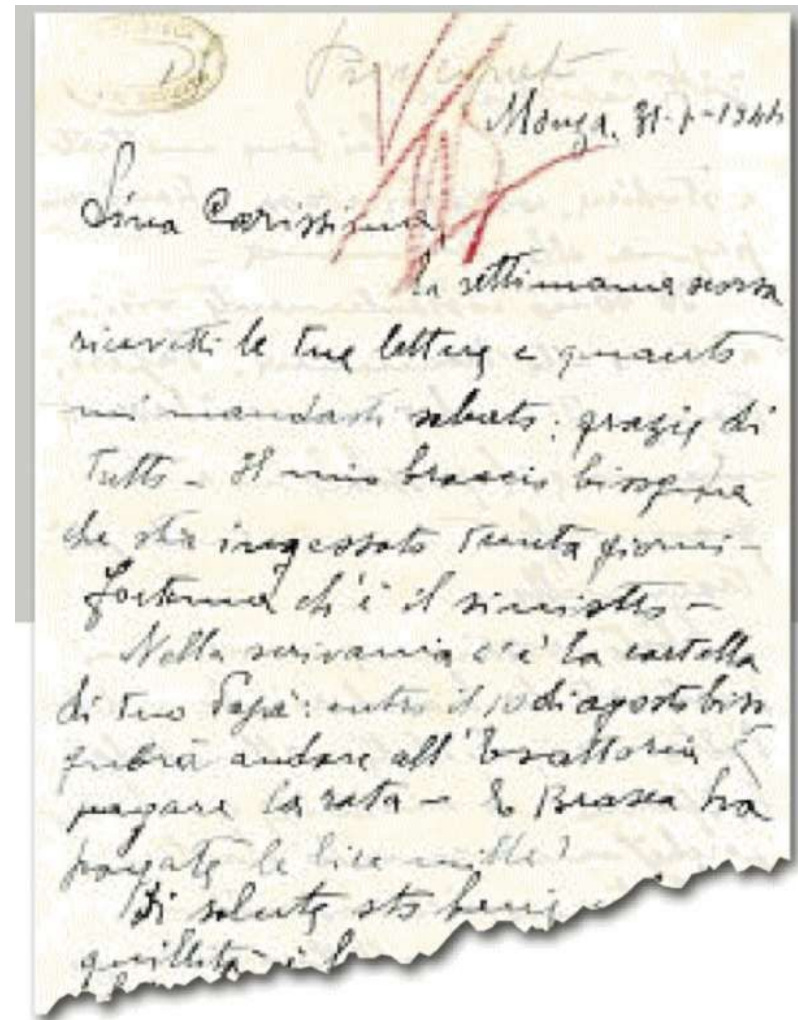 Monza, 31-7-1944
Lina Carissima,
la settimana scorsa
ricevetti le tue lettere e quanto
mi mandasti sabato: grazie di
tutto - Il mio braccio bisogna
che stia ingessato trenta giorni -
fortuna ch'è il sinistro -
Nella scrivania c'è la cartella
di tuo Papà: entro il 10 di agosto biso
gnerà andare all'Esattoria
pagare la rata - E Brasca ha
pagato le lire mille?
Di salute sto bene
quillità è